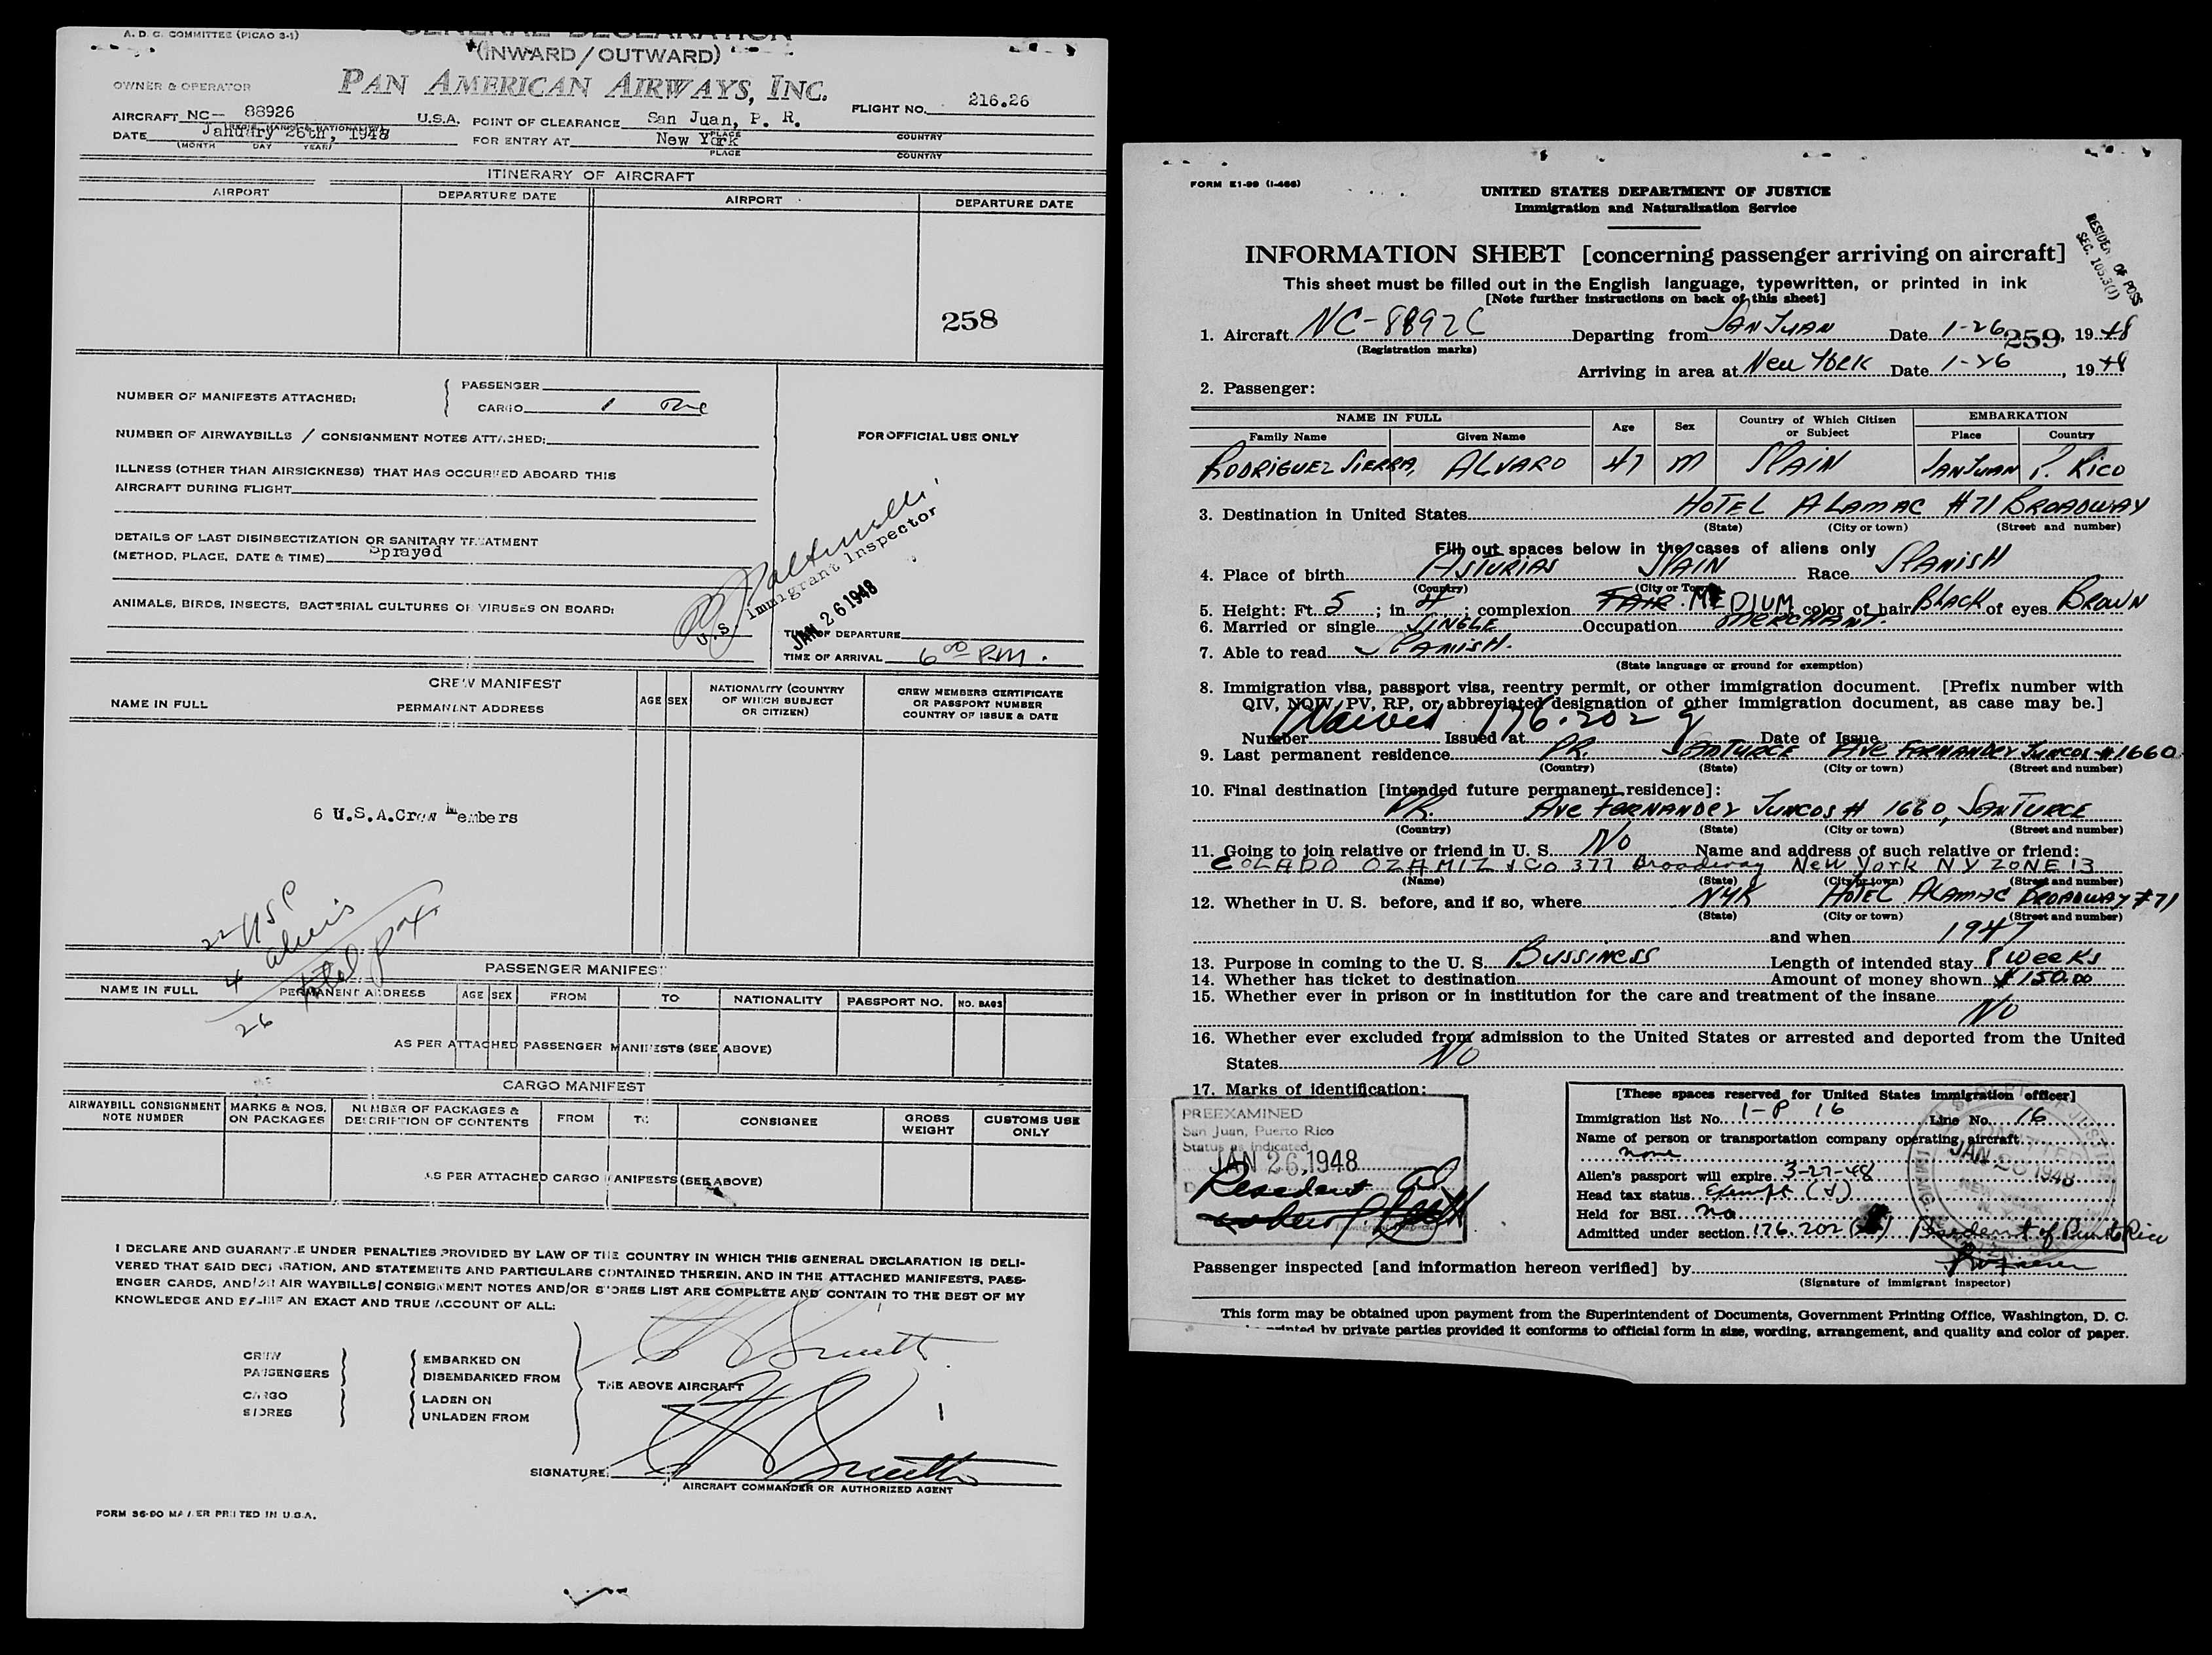 A. D. C. COMMITTEE (PICAO 3-1)
GENERAL DECLARATION
(INWARD / OUTWARD)
OWNER & OPERATOR
PAN AMERICAN AIRWAYS, INC.
FLIGHT NO. 216.26
AIRCRAFT NC— 88926 U.S.A. POINT OF CLEARANCE San Juan, P. R.
PLACE COUNTRY
DATE January 26th, 1948 FOR ENTRY AT New York
(MONTH DAY YEAR) PLACE COUNTRY
ITINERARY OF AIRCRAFT
AIRPORT DEPARTURE DATE AIRPORT DEPARTURE DATE
258
NUMBER OF MANIFESTS ATTACHED: PASSENGER
CARGO 1
NUMBER OF AIRWAYBILLS / CONSIGNMENT NOTES ATTACHED:
FOR OFFICIAL USE ONLY
ILLNESS (OTHER THAN AIRSICKNESS) THAT HAS OCCURRED ABOARD THIS
AIRCRAFT DURING FLIGHT
DETAILS OF LAST DISINSECTIZATION OR SANITARY TREATMENT
(METHOD, PLACE, DATE & TIME) Sprayed
ANIMALS, BIRDS, INSECTS, BACTERIAL CULTURES OR VIRUSES ON BOARD:
U.S. Immigrant Inspector
JAN 26 1948
TIME OF DEPARTURE
TIME OF ARRIVAL 6 00 P.M.
CREW MANIFEST
NAME IN FULL PERMANENT ADDRESS AGE SEX NATIONALITY (COUNTRY OF WHICH SUBJECT OR CITIZEN) CREW MEMBERS CERTIFICATE OR PASSPORT NUMBER COUNTRY OF ISSUE & DATE
6 U.S.A.Crew Members
22 USC
4 aliens
26 total pax
PASSENGER MANIFEST
NAME IN FULL PERMANENT ADDRESS AGE SEX FROM TO NATIONALITY PASSPORT NO. NO. BAGS
AS PER ATTACHED PASSENGER MANIFESTS (SEE ABOVE)
CARGO MANIFEST
AIRWAYBILL CONSIGNMENT NOTE NUMBER MARKS & NOS. ON PACKAGES NUMBER OF PACKAGES & DESCRIPTION OF CONTENTS FROM TO CONSIGNEE GROSS WEIGHT CUSTOMS USE ONLY
AS PER ATTACHED CARGO MANIFESTS (SEE ABOVE)
I DECLARE AND GUARANTEE UNDER PENALTIES PROVIDED BY LAW OF THE COUNTRY IN WHICH THIS GENERAL DECLARATION IS DELI-
VERED THAT SAID DECLARATION, AND STATEMENTS AND PARTICULARS CONTAINED THEREIN, AND IN THE ATTACHED MANIFESTS, PASS-
ENGER CARDS, AND/OR AIR WAYBILLS/ CONSIGNMENT NOTES AND/OR STORES LIST ARE COMPLETE AND CONTAIN TO THE BEST OF MY
KNOWLEDGE AND BELIEF AN EXACT AND TRUE ACCOUNT OF ALL:
CREW EMBARKED ON
PASSENGERS DISEMBARKED FROM
THE ABOVE AIRCRAFT
CARGO LADEN ON
STORES UNLADEN FROM
SIGNATURE:
AIRCRAFT COMMANDER OR AUTHORIZED AGENT
PRINTED IN U.S.A.
FORM E1-99 (I-466)
UNITED STATES DEPARTMENT OF JUSTICE
Immigration and Naturalization Service
INFORMATION SHEET [concerning passenger arriving on aircraft]
RESIDENT OF POSS
SEC. 105.3(J)
This sheet must be filled out in the English language, typewritten, or printed in ink
[Note further instructions on back of this sheet]
1. Aircraft NC-88926 Departing from SAN JUAN Date 1-26, 1948
(Registration marks) 259
Arriving in area at New YORK Date 1-26, 1948
2. Passenger:
NAME IN FULL Age Sex Country of Which Citizen or Subject EMBARKATION
Family Name Given Name Place Country
RODRIGUEZ SIERRA, ALVARO 47 M SPAIN SAN JUAN P. RICO
3. Destination in United States HOTEL ALAMAC #71 BROADWAY
(State) (City or town) (Street and number)
Fill out spaces below in the cases of aliens only
4. Place of birth ASTURIAS SPAIN Race SPANISH
(Country) (City or Town)
5. Height: Ft. 5; in. 4; complexion FAIR MEDIUM color of hair BLACK of eyes BROWN
6. Married or single SINGLE Occupation MERCHANT.
7. Able to read SPANISH.
(State language or ground for exemption)
8. Immigration visa, passport visa, reentry permit, or other immigration document. [Prefix number with
QIV, NQIV, PV, RP, or abbreviated designation of other immigration document, as case may be.]
Number Waived 176.202 Issued at Date of Issue
9. Last permanent residence P.R. SANTURCE AVE FERNANDEZ JUNCOS #1660
(Country) (State) (City or town) (Street and number)
10. Final destination [intended future permanent residence]:
P.R. AVE FERNANDEZ JUNCOS # 1660, SANTURCE
(Country) (State) (City or town) (Street and number)
11. Going to join relative or friend in U. S. NO Name and address of such relative or friend:
COLADO OZAMIZ & CO 377 Broadway New York NY ZONE 13
(Name) (State) (City or town) (Street and number)
12. Whether in U. S. before, and if so, where NYK HOTEL ALAMAC BROADWAY #71
(State) (City or town) (Street and number)
and when 1947
13. Purpose in coming to the U. S. BUSSINESS Length of intended stay 8 weeks
14. Whether has ticket to destination Amount of money shown $150.00
15. Whether ever in prison or in institution for the care and treatment of the insane
NO
16. Whether ever excluded from admission to the United States or arrested and deported from the United
States NO
17. Marks of identification:
PREEXAMINED
San Juan, Puerto Rico
Status as indicated
JAN 26 1948
[These spaces reserved for United States immigration officer]
Immigration list No. 1-P 16 Line No. 16
Name of person or transportation company operating aircraft
none
Alien's passport will expire 3-27-48
Head tax status Exempt (J)
Held for BSI no
Admitted under section 176.202 Resident of Puerto Rico
Passenger inspected [and information hereon verified] by
(Signature of immigrant inspector)
This form may be obtained upon payment from the Superintendent of Documents, Government Printing Office, Washington, D. C.
printed by private parties provided it conforms to official form in size, wording, arrangement, and quality and color of paper.